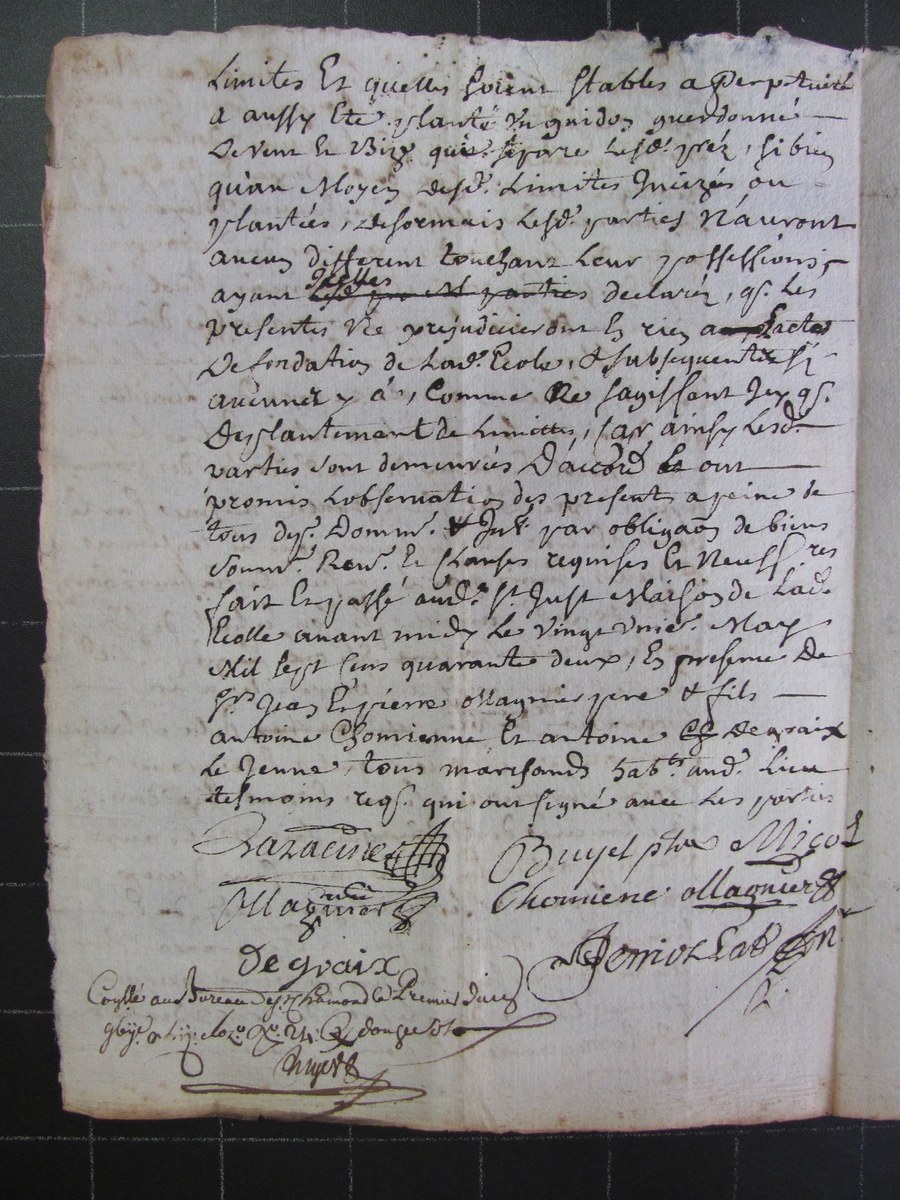 Limites Et quelles soient stables a Perpetuité
a aussy Eté planté un guidon guerdonné
De vent Et Bize qui separe lesd. préz, si bien
qu'au Moyen desd. Limites Inizés ou
plantées, desormais Lesd. parties N'auront
aucun different touchant Leur possessions,
ayant Icelles declaréz, q. Les
presentes Ne prejudicieront En rien a Lacte
De fondation de Lad. Ecole, & subsequents si
aucunes y á, Comme Ne sagissant Icy q.
Desplantement de Limittes, Car ainsy Lesd.
parties sont demeurées D'accord ont
promis Lobservation des presents a peine de
tous dep. Domm. & Int. par obligaon de biens
soum. Ren. Et Clauses requises Et Necess.res
fait Et passé aud. St Just Maison de Lad.
Ecolle avant midy Le vingt unie. May
Mil sept Cens quarante deux, En presence De
Srs Jean Et pierre Magnier pere & fils
antoine Chomienne Et antoine Degraix
Le Jeune, tous marchands hab.ts aud. Lieu
tesmoins req. qui ont signé avec Les parties
Bujel ptre Micol
Magnier
Chomiene Magnier
Degraix
Conllé au Bureau de St Chamond Le Premier Juin
douze sols